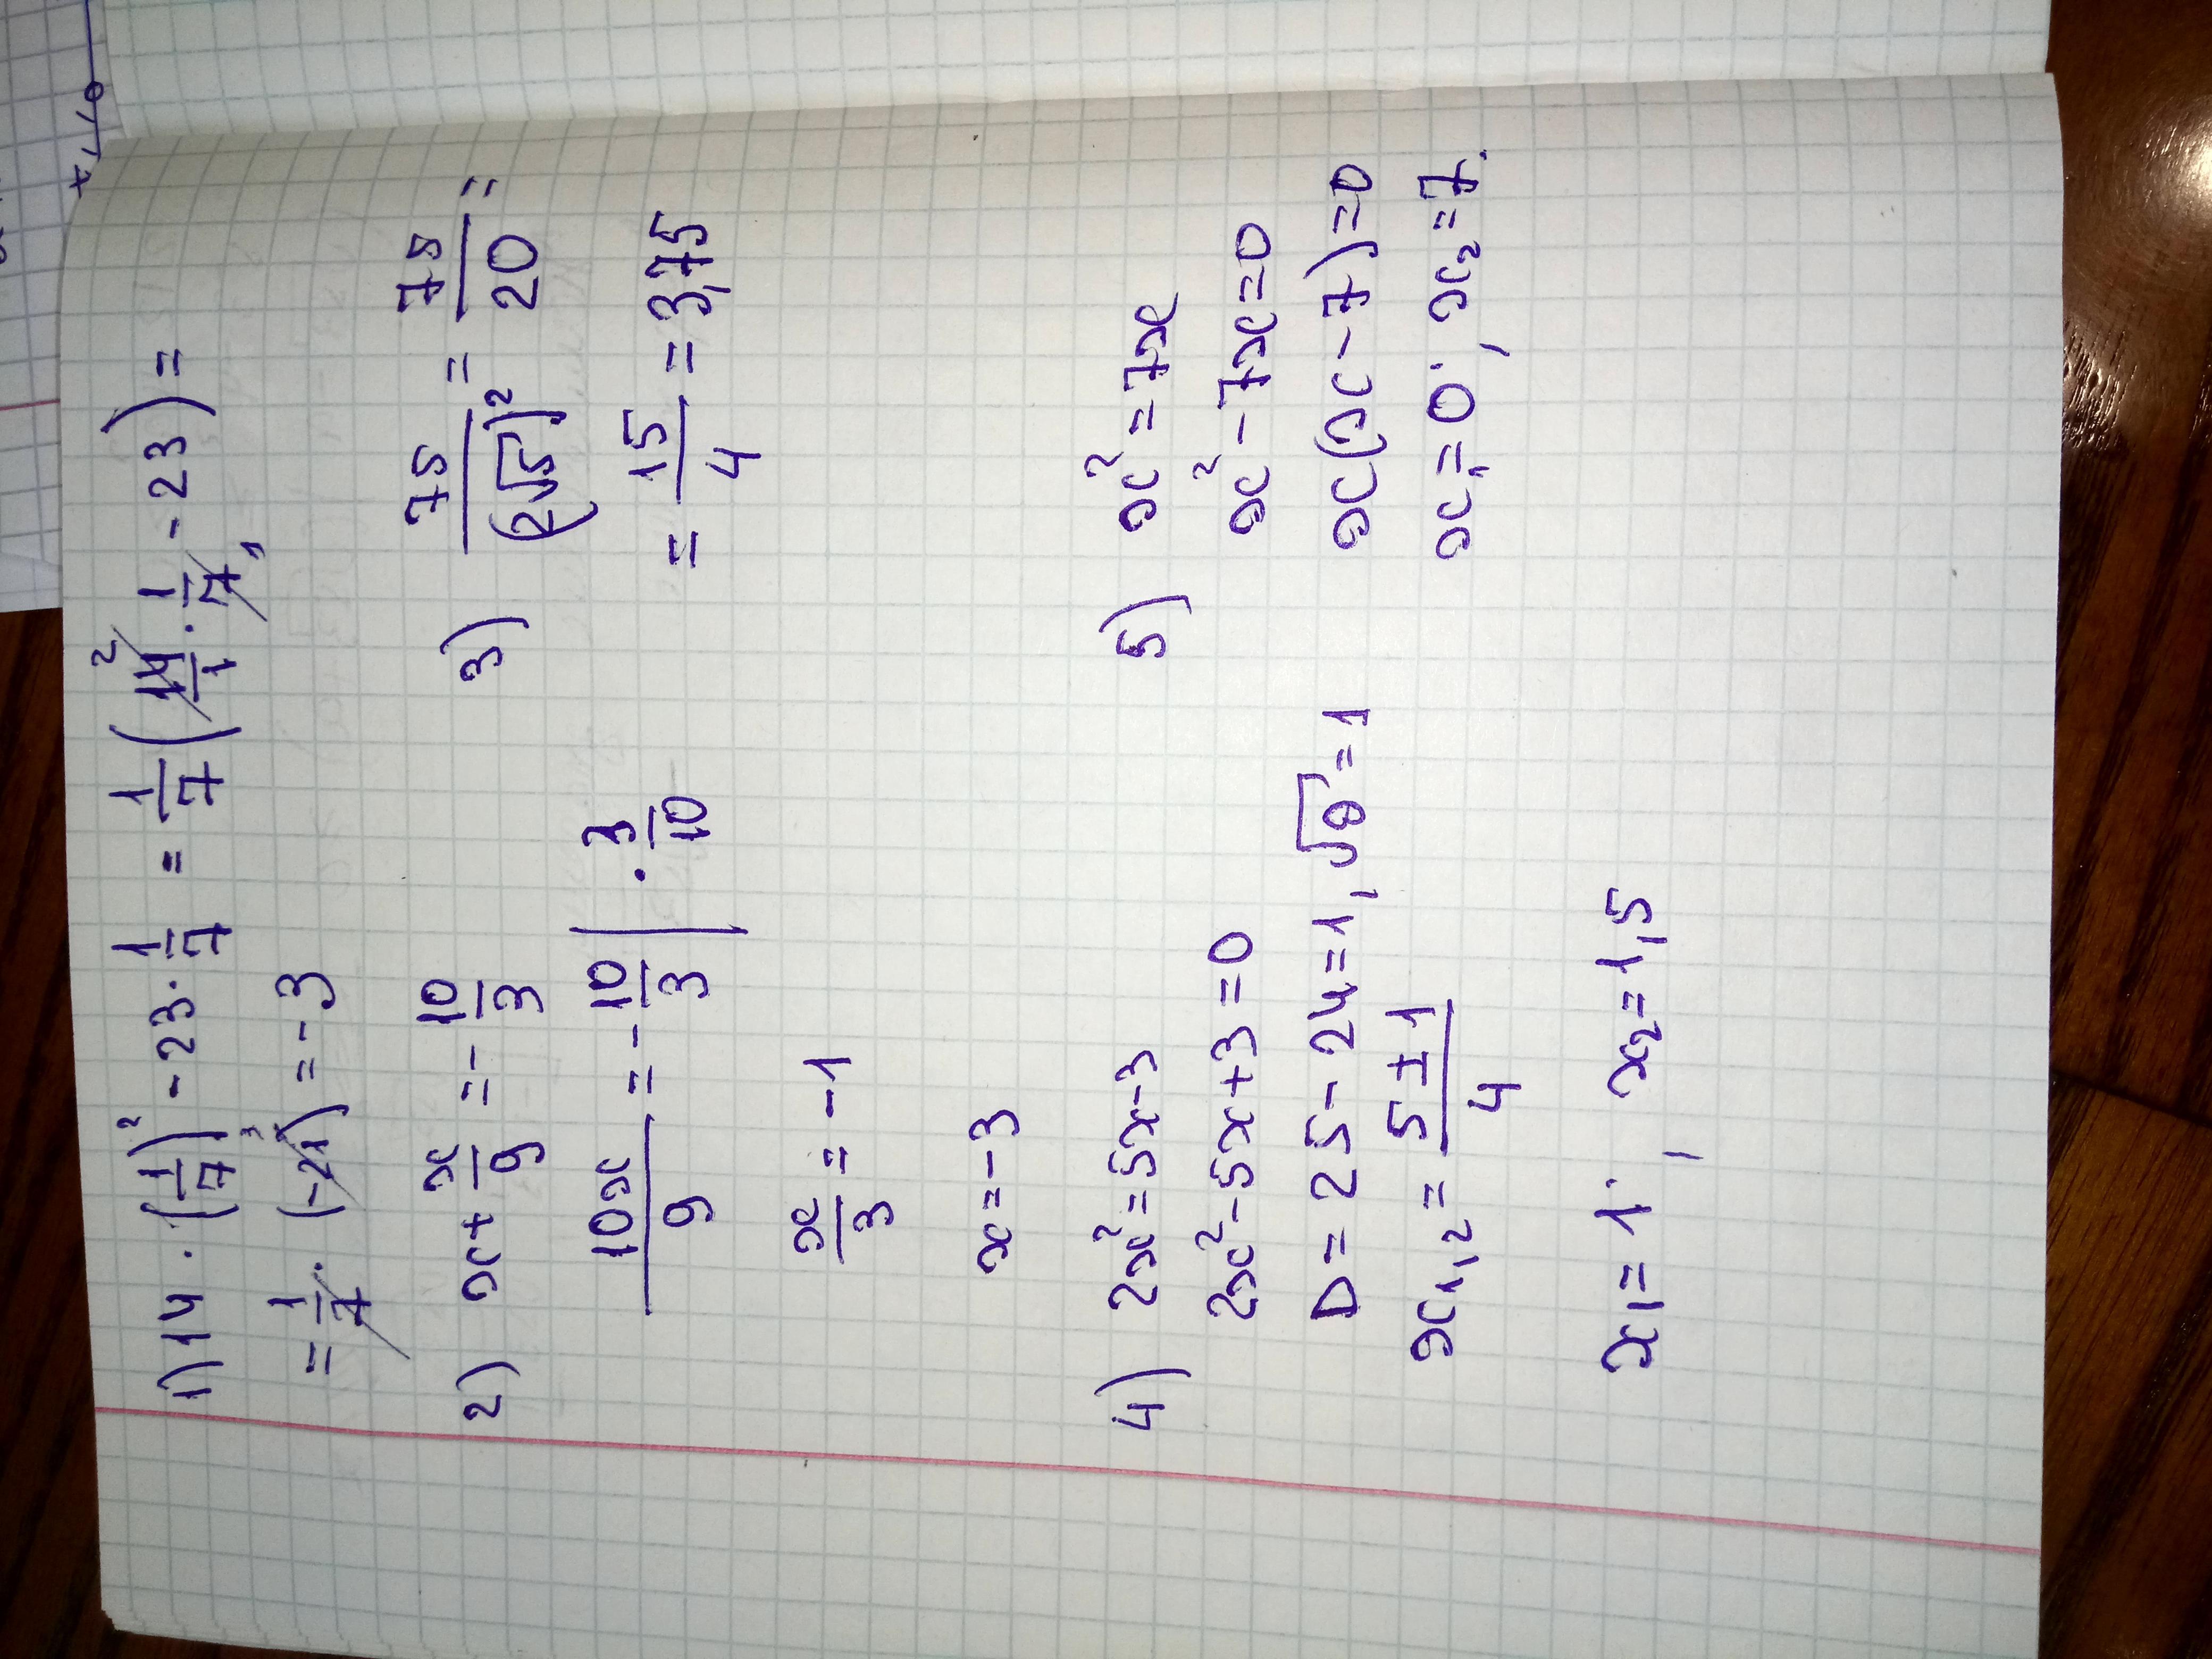 1) 14 · (1/7)² - 23 · 1/7 = 1/7 (14/1 · 1/7 - 23) =
= 1/7 · (-21) = -3
2) x + x/9 = -10/3
10x/9 = -10/3 | · 3/10
x/3 = -1
x = -3
3) 75/(2√5)² = 75/20 =
= 15/4 = 3,75
4) 2x² = 5x - 3
2x² - 5x + 3 = 0
D = 25 - 24 = 1, √D = 1
x₁,₂ = (5 ± 1)/4
x₁ = 1; x₂ = 1,5
5) x² = 7x
x² - 7x = 0
x(x - 7) = 0
x₁ = 0; x₂ = 7.